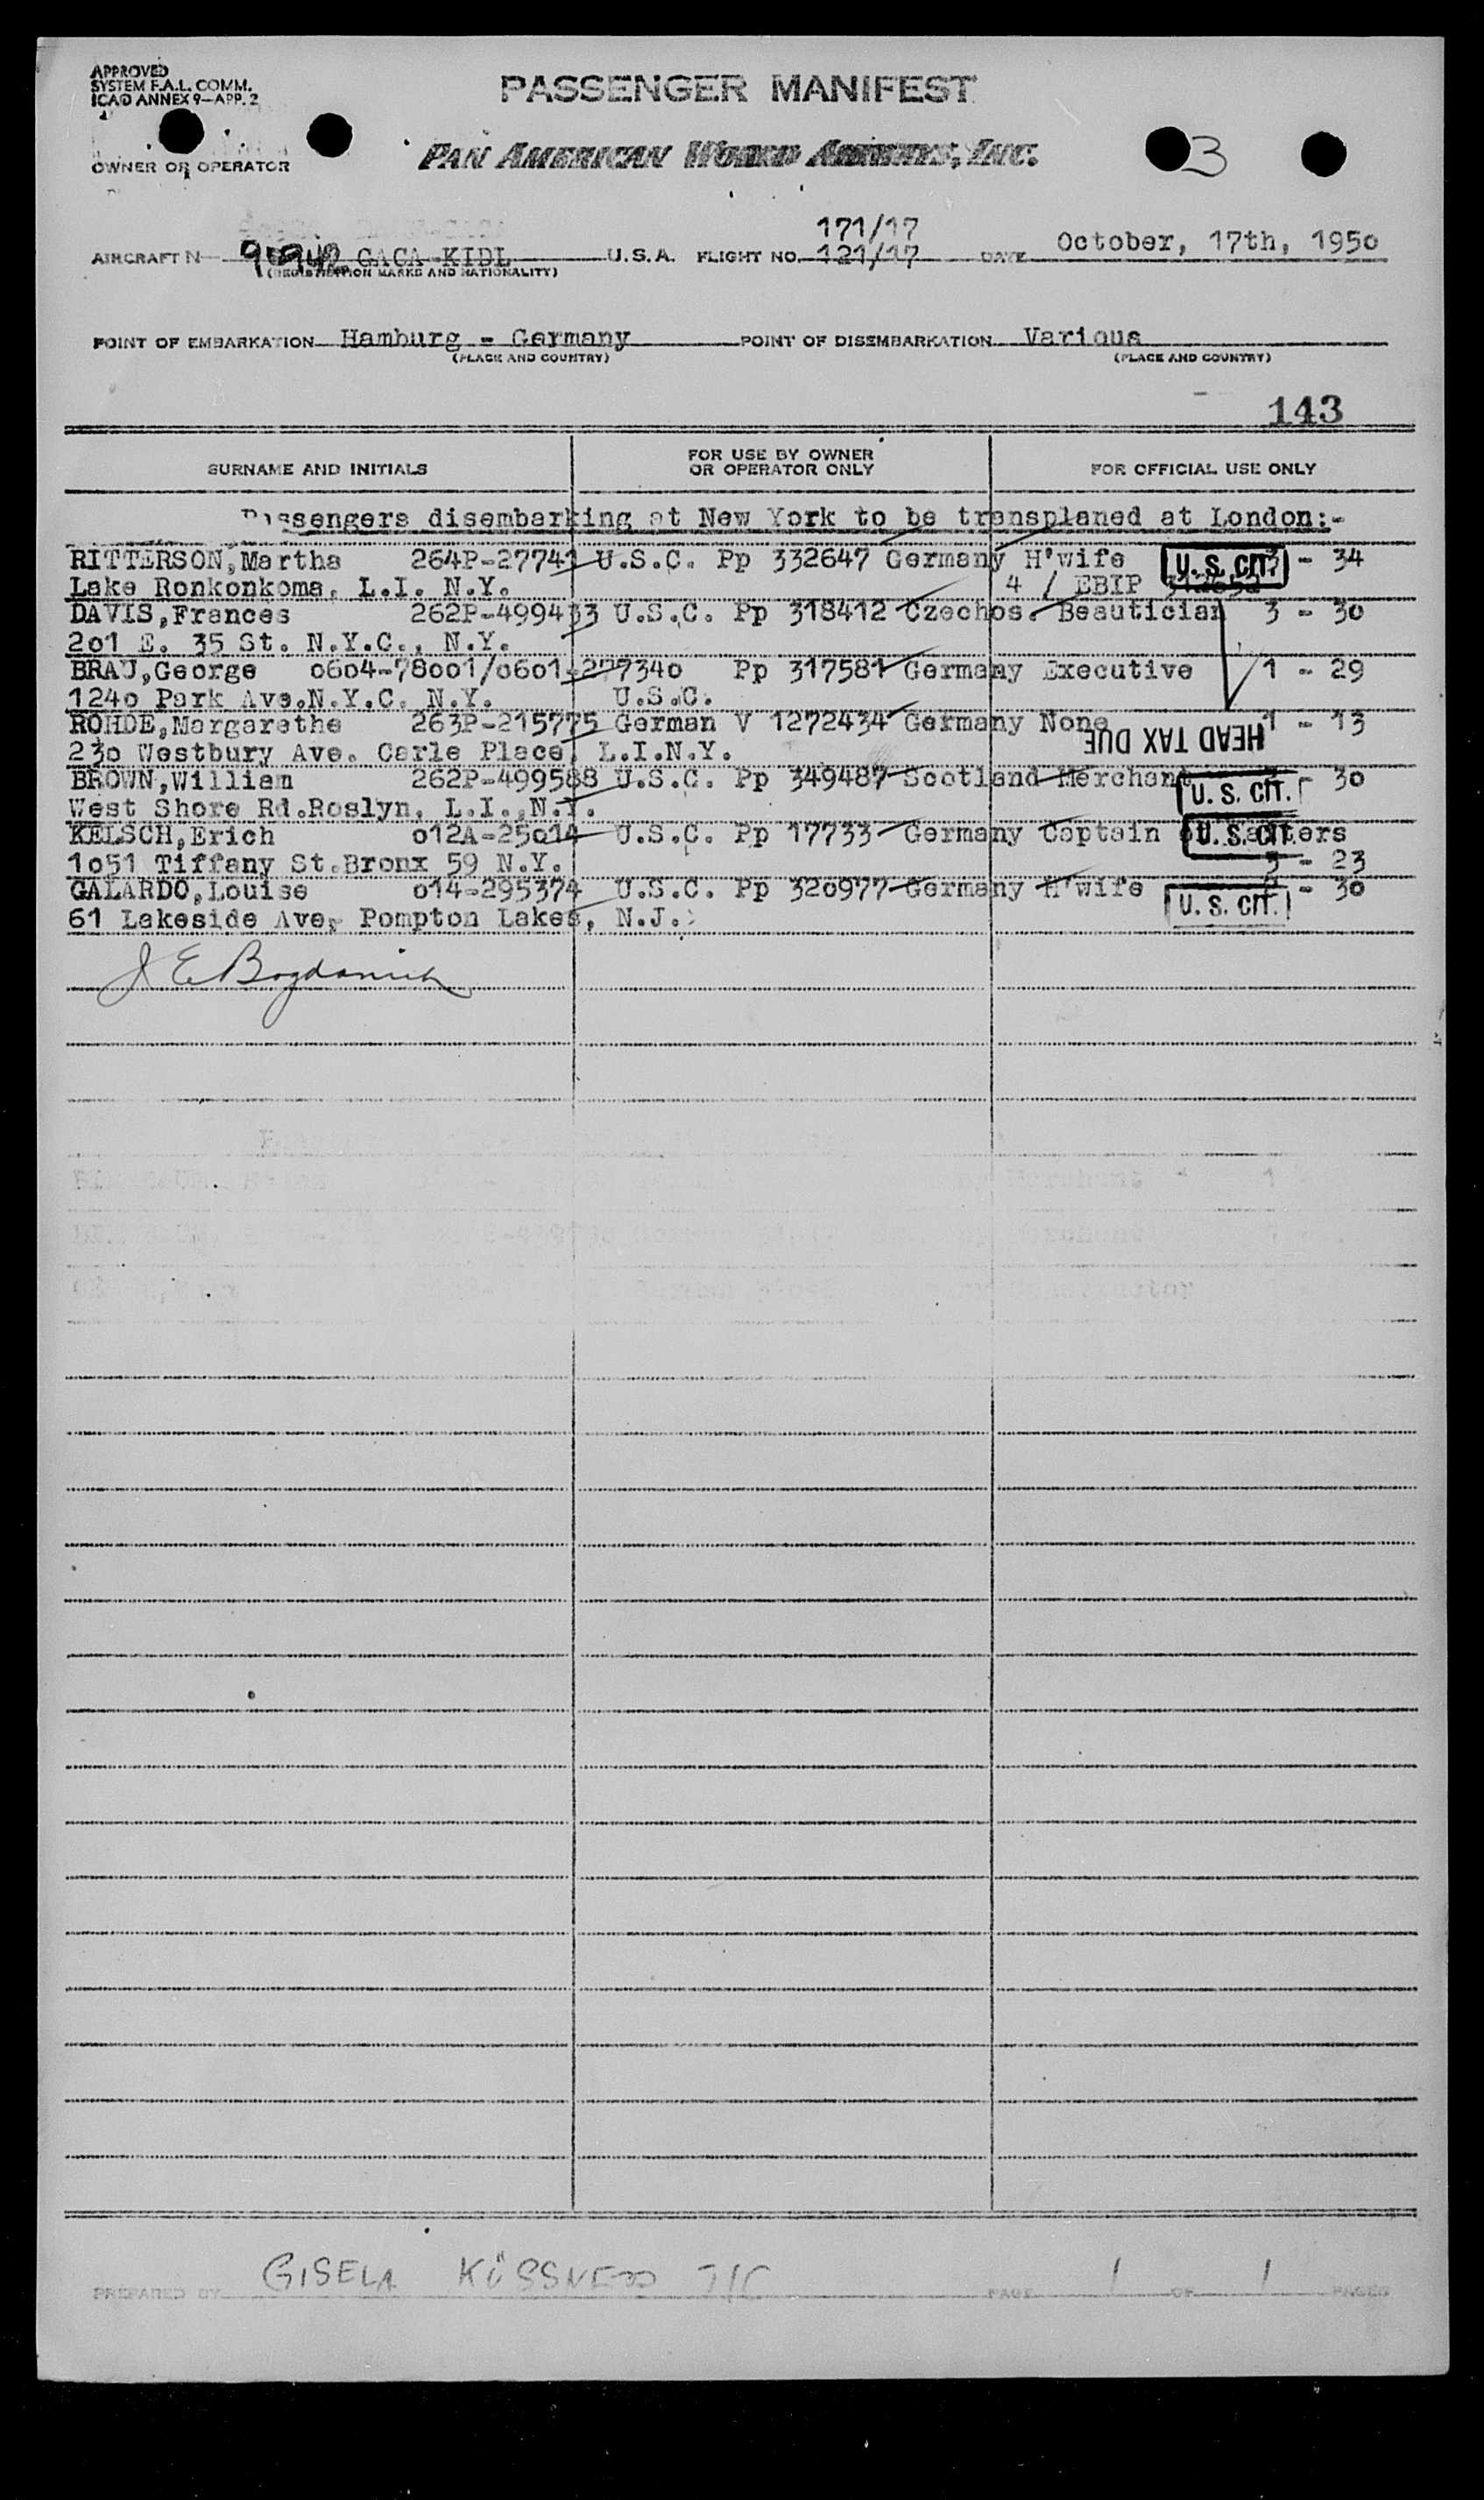 APPROVED
SYSTEM F.A.L. COMM.
ICAO ANNEX 9—APP. 2
PASSENGER MANIFEST
OWNER OR OPERATOR
PAN AMERICAN WORLD AIRWAYS, INC.
3
171/17
AIRCRAFT N GACA KIDL U.S.A. FLIGHT NO. 121/17 DATE October, 17th, 195o
(REGISTRATION MARKS AND NATIONALITY)
POINT OF EMBARKATION Hamburg - Germany POINT OF DISEMBARKATION Various
(PLACE AND COUNTRY) (PLACE AND COUNTRY)
143
SURNAME AND INITIALS FOR USE BY OWNER OR OPERATOR ONLY FOR OFFICIAL USE ONLY
Passengers disembarking at New York to be transplaned at London:-
RITTERSON,Martha 264P-27741 U.S.C. Pp 332647 Germany H'wife U.S. CIT. 3 - 34
Lake Ronkonkoma, L.I. N.Y. 4 / EBIP
DAVIS,Frances 262P-499433 U.S.C. Pp 318412 Czechos. Beautician 3 - 3o
2o1 E. 35 St. N.Y.C., N.Y.
BRAU,George o6o4-78oo1/o6o1-27734o Pp 317581 Germany Executive 1 - 29
124o Park Ave.N.Y.C. N.Y. U.S.C.
ROHDE,Margarethe 263P-215775 German V 1272434 Germany None 1 - 13
HEAD TAX DUE
23o Westbury Ave. Carle Place, L.I.N.Y.
BROWN,William 262P-499588 U.S.C. Pp 349487 Scotland Merchant U.S. CIT. 3o
West Shore Rd.Roslyn, L.I.,N.Y.
KELSCH,Erich o12A-25o14 U.S.C. Pp 17733 Germany Captain of Waiters U.S. CIT.
1o51 Tiffany St.Bronx 59 N.Y. 3 - 23
GALARDO,Louise o14-295374 U.S.C. Pp 32o977 Germany H'wife U.S. CIT. - 3o
61 Lakeside Ave, Pompton Lakes, N.J.
J E Bogdanich
PREPARED BY GISELA KÜSSNER T/C PAGE 1 OF 1 PAGES